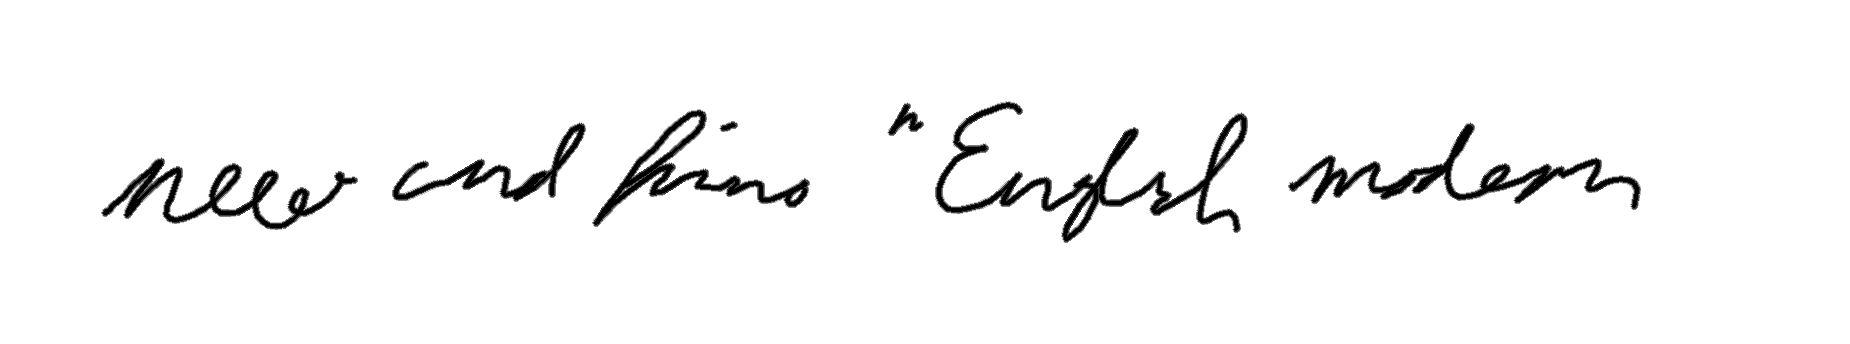 new and hins "English modern